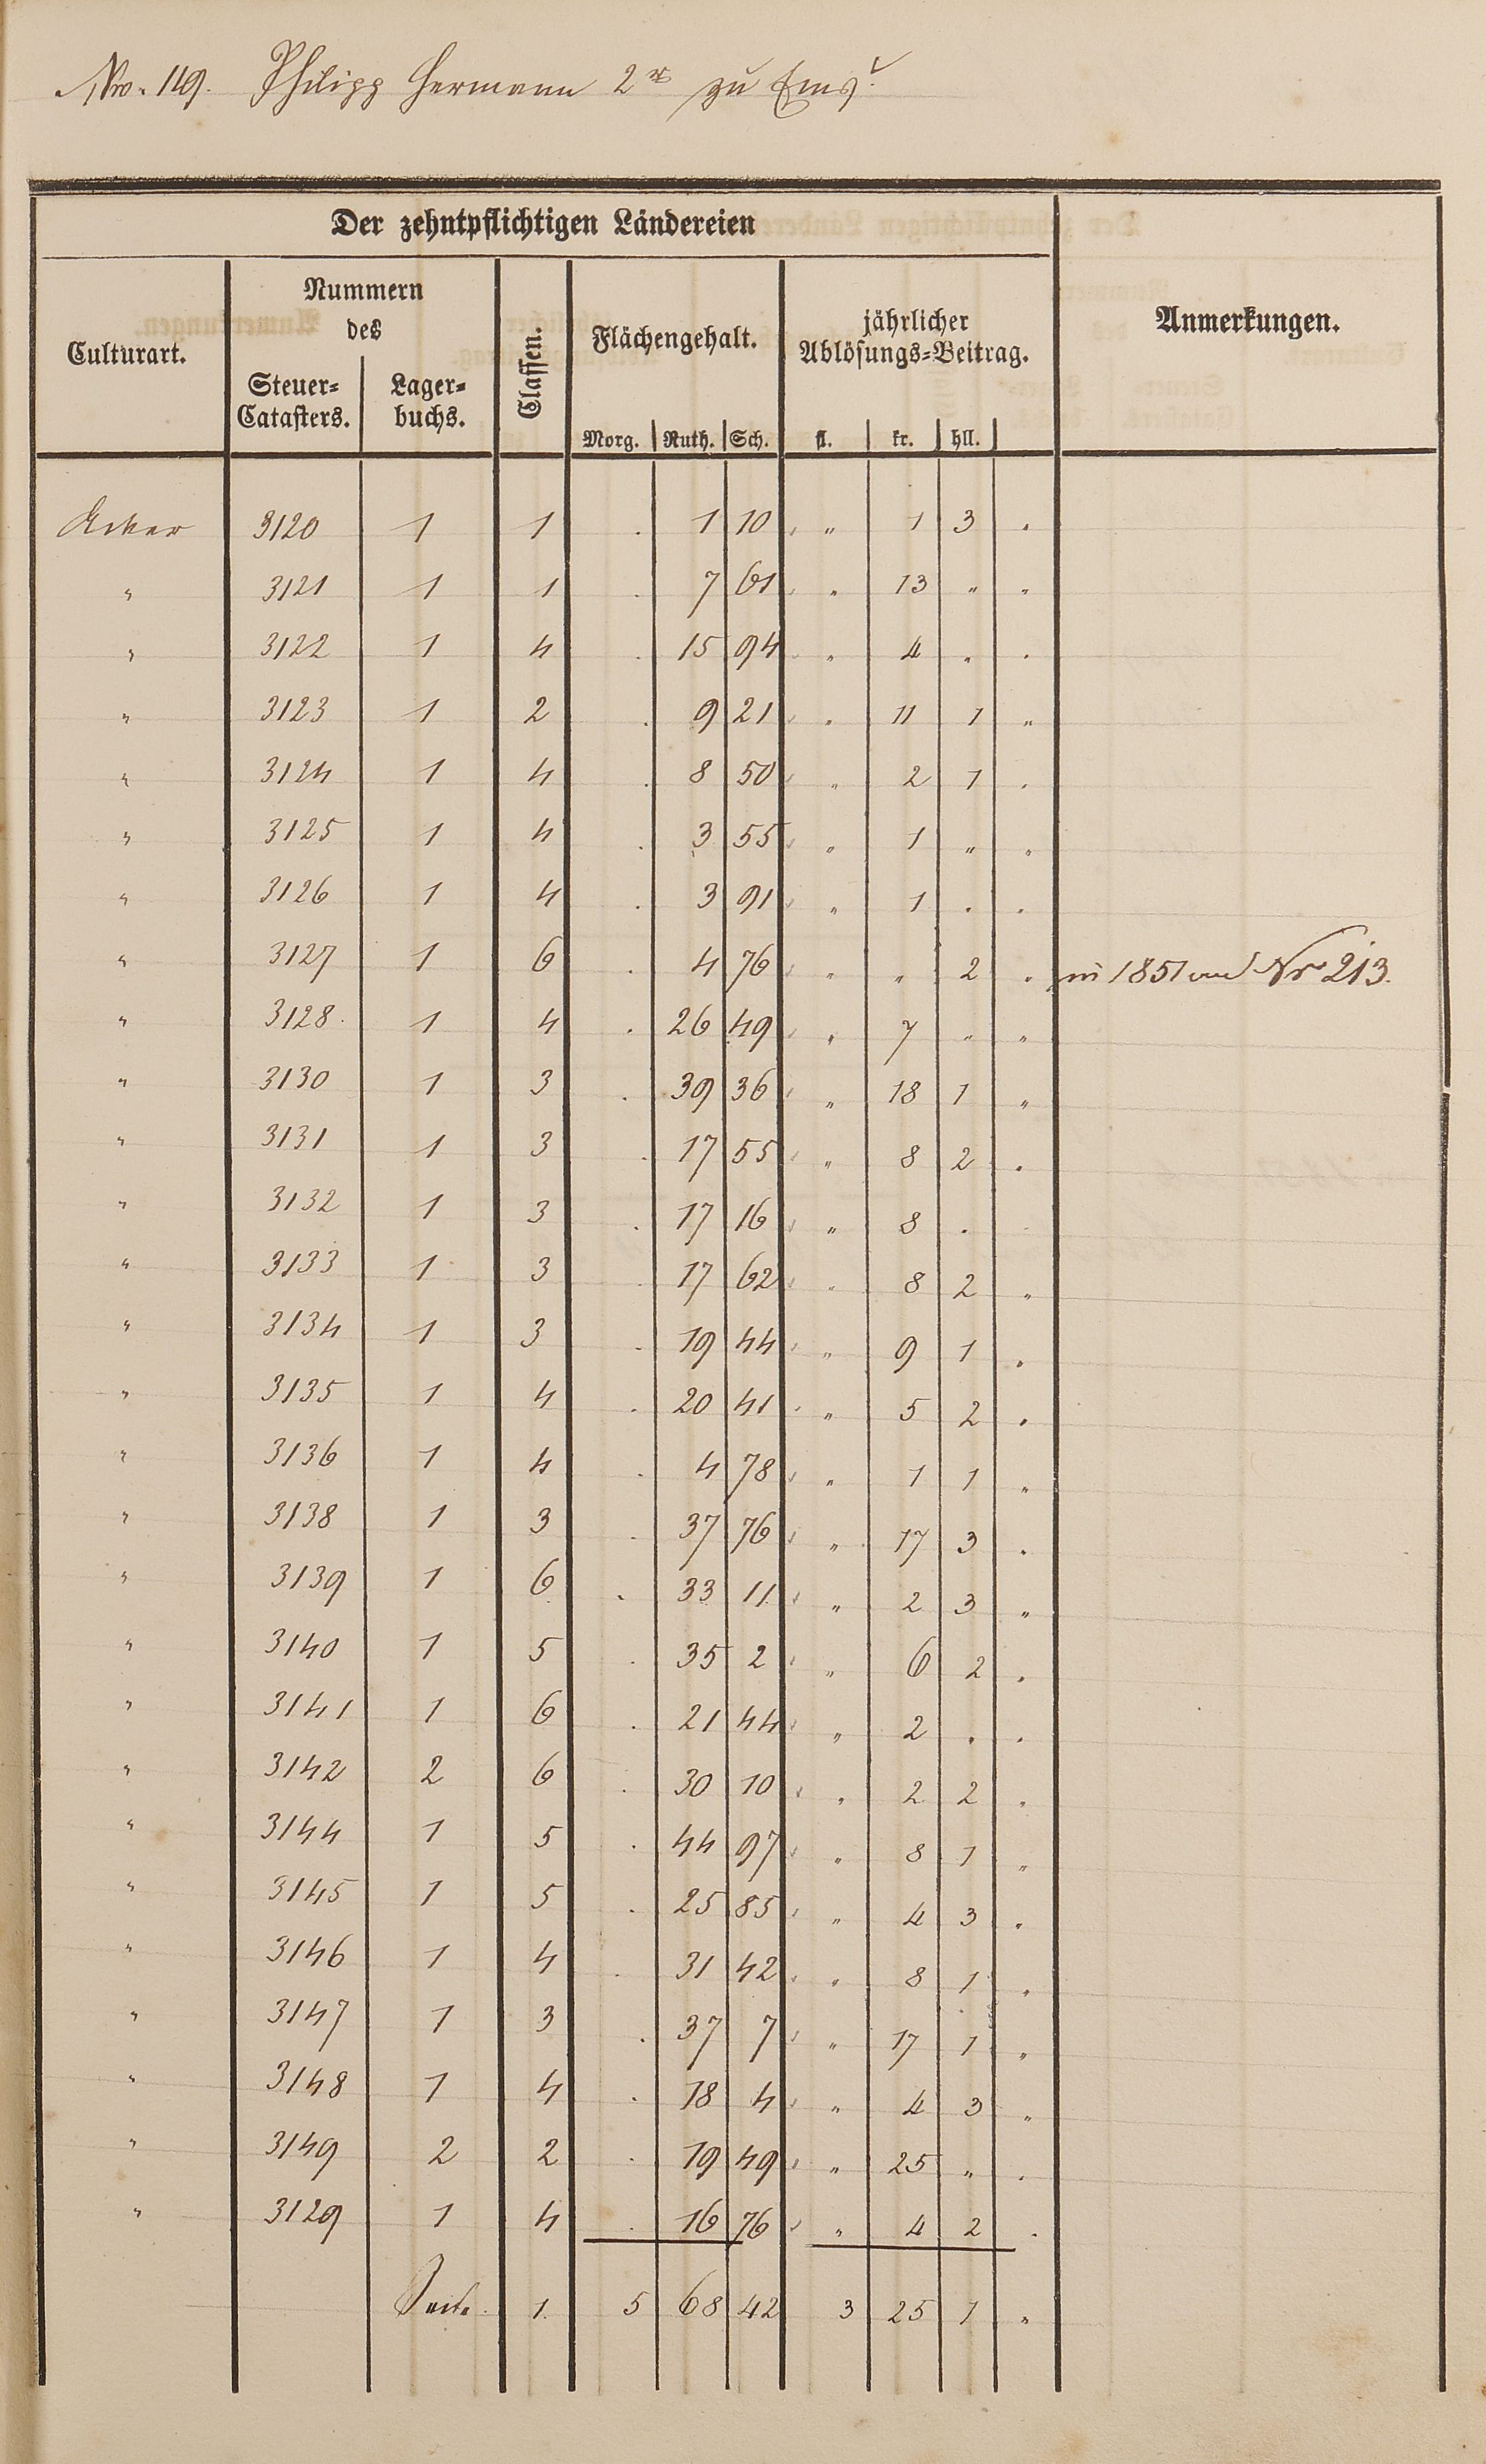 Nro. 119. Philipp Hermann 2r zu Ems.
Der zehntpflichtigen Ländereien
Culturart. Nummern des Steuer=Catasters. Lager=buchs. Classen. Flächengehalt. jährlicher Ablösungs=Beitrag. Anmerkungen.
Morg. Ruth. Sch. fl. kr. hll.
Acker 3120 1 1 . 1 10 " 1 3 .
" 3121 1 1 . 7 61 " 13 " "
" 3122 1 4 . 15 94 " 4 " .
" 3123 1 2 . 9 21 " 11 1 "
" 3124 1 4 . 8 50 " 2 1 .
" 3125 1 4 . 3 55 " 1 " "
" 3126 1 4 . 3 91 " 1 . .
" 3127 1 6 . 4 76 " " 2 . in 1851 auf Nr 213.
" 3128. 1 4 . 26 49 " 7 " "
" 3130 1 3 . 39 36 " 18 1 "
" 3131 1 3 . 17 55 " 8 2 .
" 3132 1 3 . 17 16 " 8 . .
" 3133 1 3 . 17 62 " 8 2 "
" 3134 1 3 . 19 44 " 9 1 .
" 3135 1 4 . 20 41 " 5 2 .
" 3136 1 4 . 4 78 " 1 1 "
" 3138 1 3 . 37 76 " 17 3 .
" 3139 1 6 . 33 11 " 2 3 "
" 3140 1 5 . 35 2 " 6 2 .
" 3141 1 6 . 21 44 " 2 . .
" 3142 2 6 . 30 10 " 2 2 .
" 3144 1 5 . 44 97 " 8 1 "
" 3145 1 5 . 25 85 " 4 3 .
" 3146 1 4 . 31 42 " 8 1 "
" 3147 1 3 . 37 7 " 17 1 "
" 3148 1 4 . 18 4 " 4 3 "
" 3149 2 2 . 19 49 " 25 " .
" 3129 1 4 . 16 76 " 4 2 .
Seite 1. 5 68 42 3 25 1 "